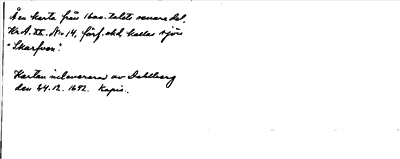 Å en karta från 1600-talets senare del,
Kr.A. XX. N:o 14, förf. okd, kallas sjön
"Skarfven".
Kartan inlevererad av Dahlberg
den 24.12.1692. Kopia.